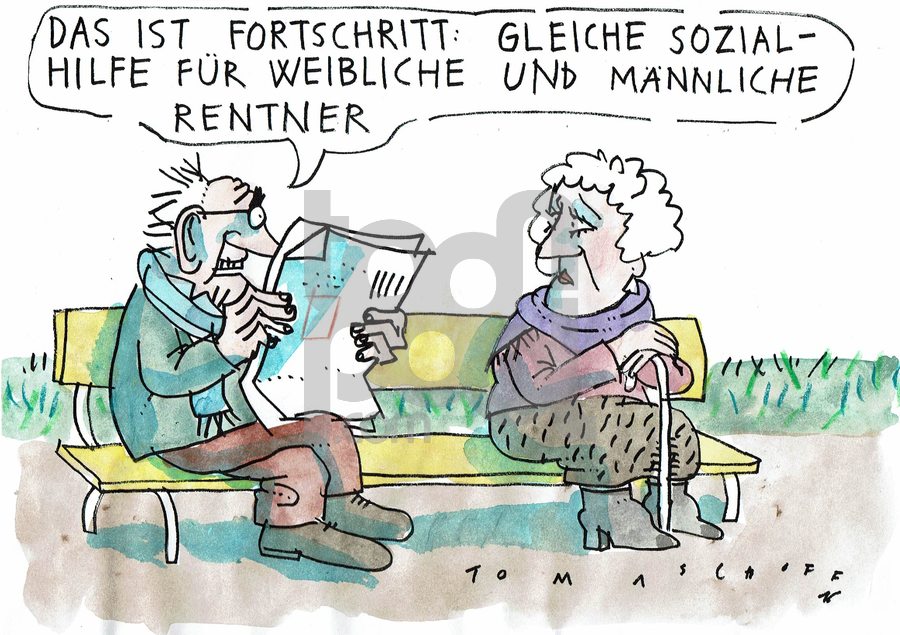 DAS IST FORTSCHRITT: GLEICHE SOZIAL-
HILFE FÜR WEIBLICHE UND MÄNNLICHE
RENTNER
toon
pool
.com
TOMASCHOFF